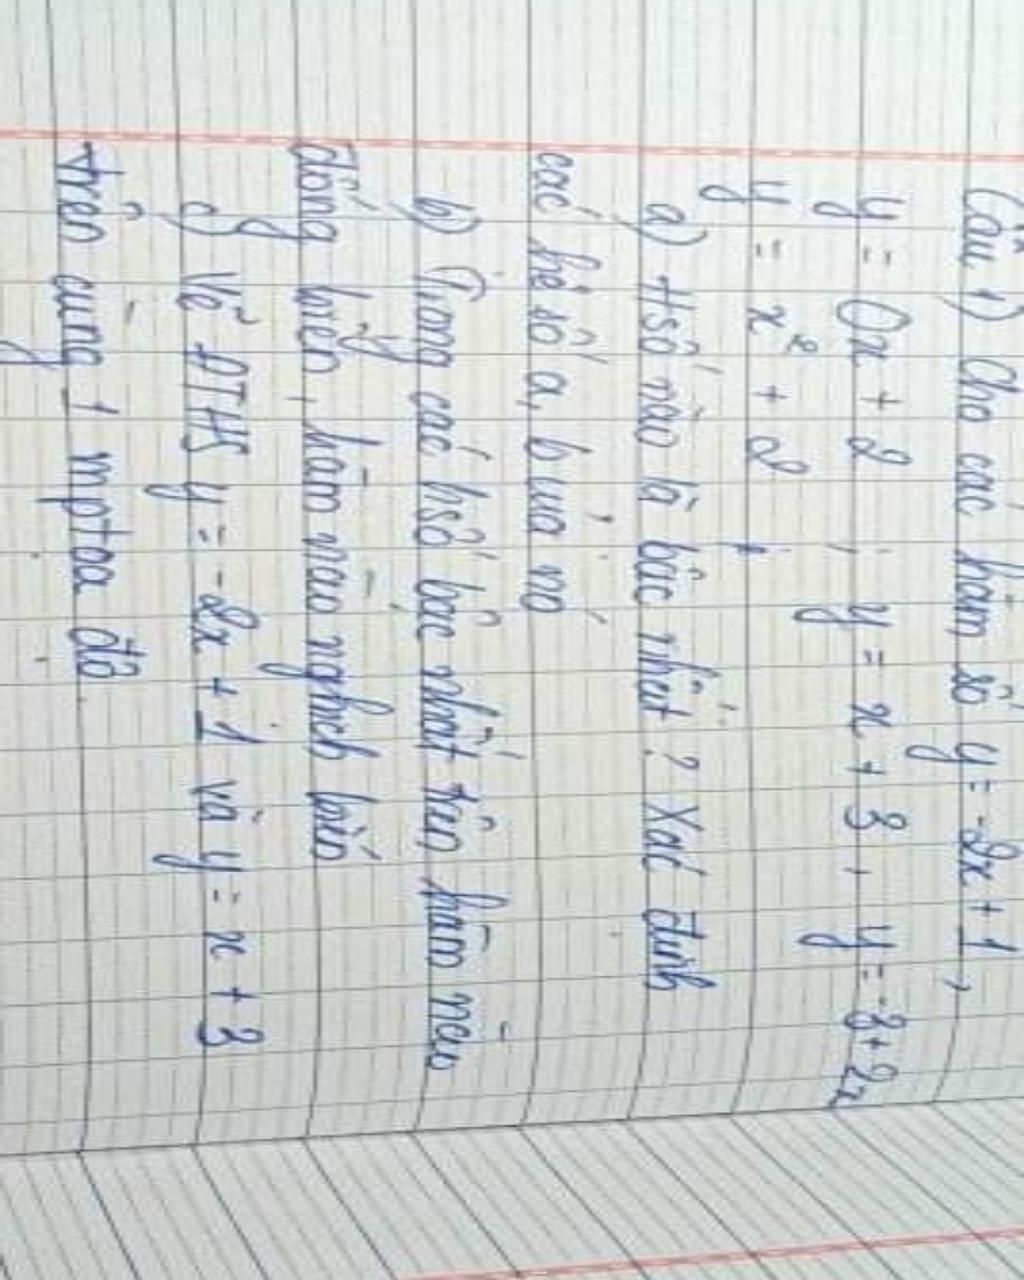 Câu 1) Cho các hàm số y = -2x + 1,
y = 0x + 2 ; y = x + 3, y = -3 + 2x
y = x² + 2 ;
a) Hsố nào là bậc nhất ? Xác định
các hệ số a, b của nó
b) Trong các hsố bậc nhất trên hàm nào
đồng biến, hàm nào nghịch biến
c) Vẽ ĐTHS y = -2x + 1 và y = x + 3
trên cùng 1 mptọa độ.